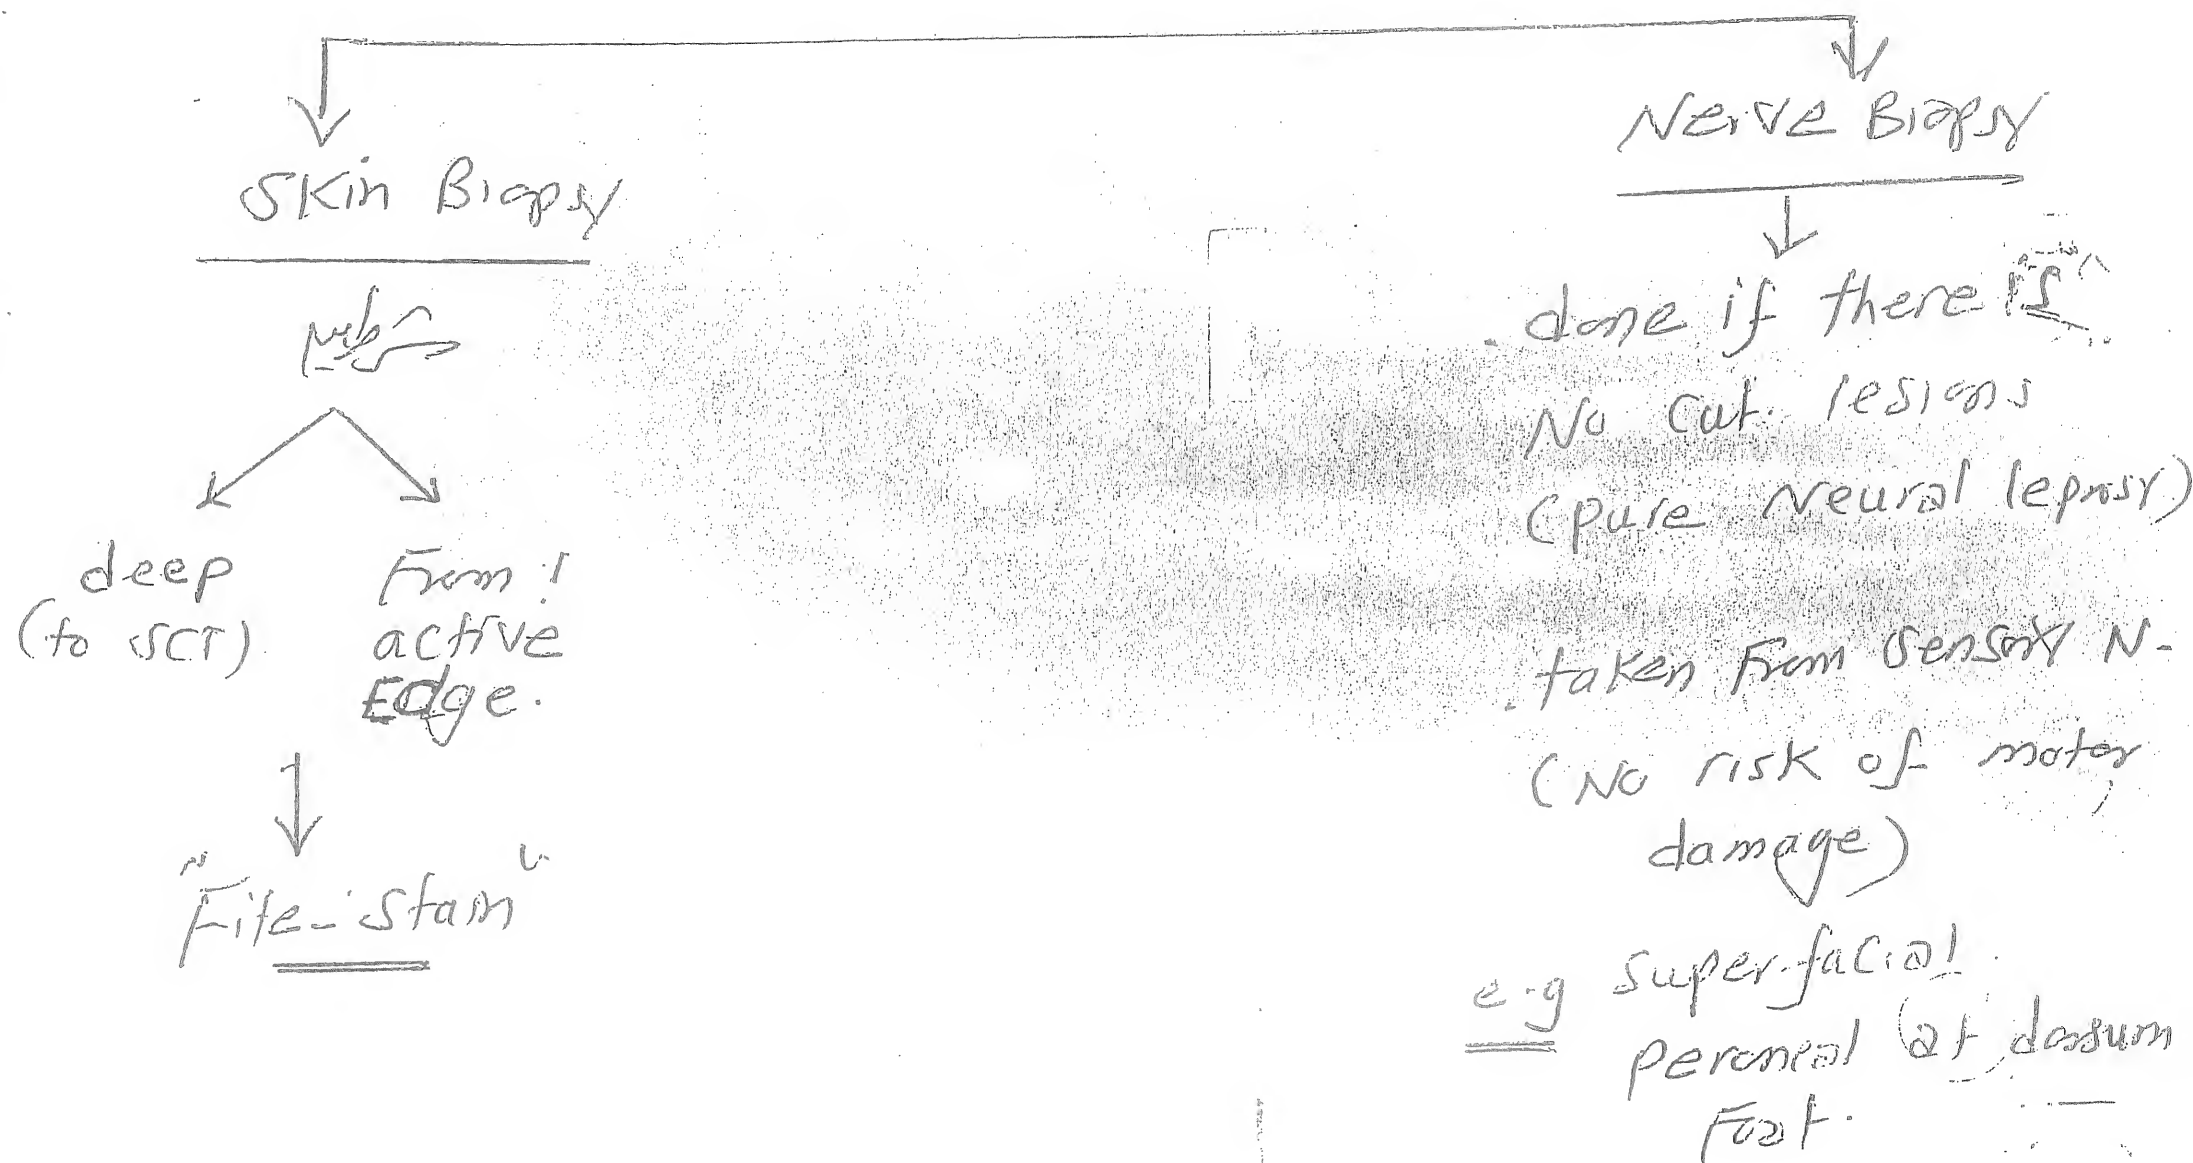 Skin Biopsy
deep
(to SCT)
From !
active
Edge.
"Fite-stain"
Nerve Biopsy
. done if there is
No cut. lesions
(pure Neural leprosy)
. taken From sensory N.
(No risk of motor
damage)
e.g superfacial
peroneal (at dorsum
Foot.